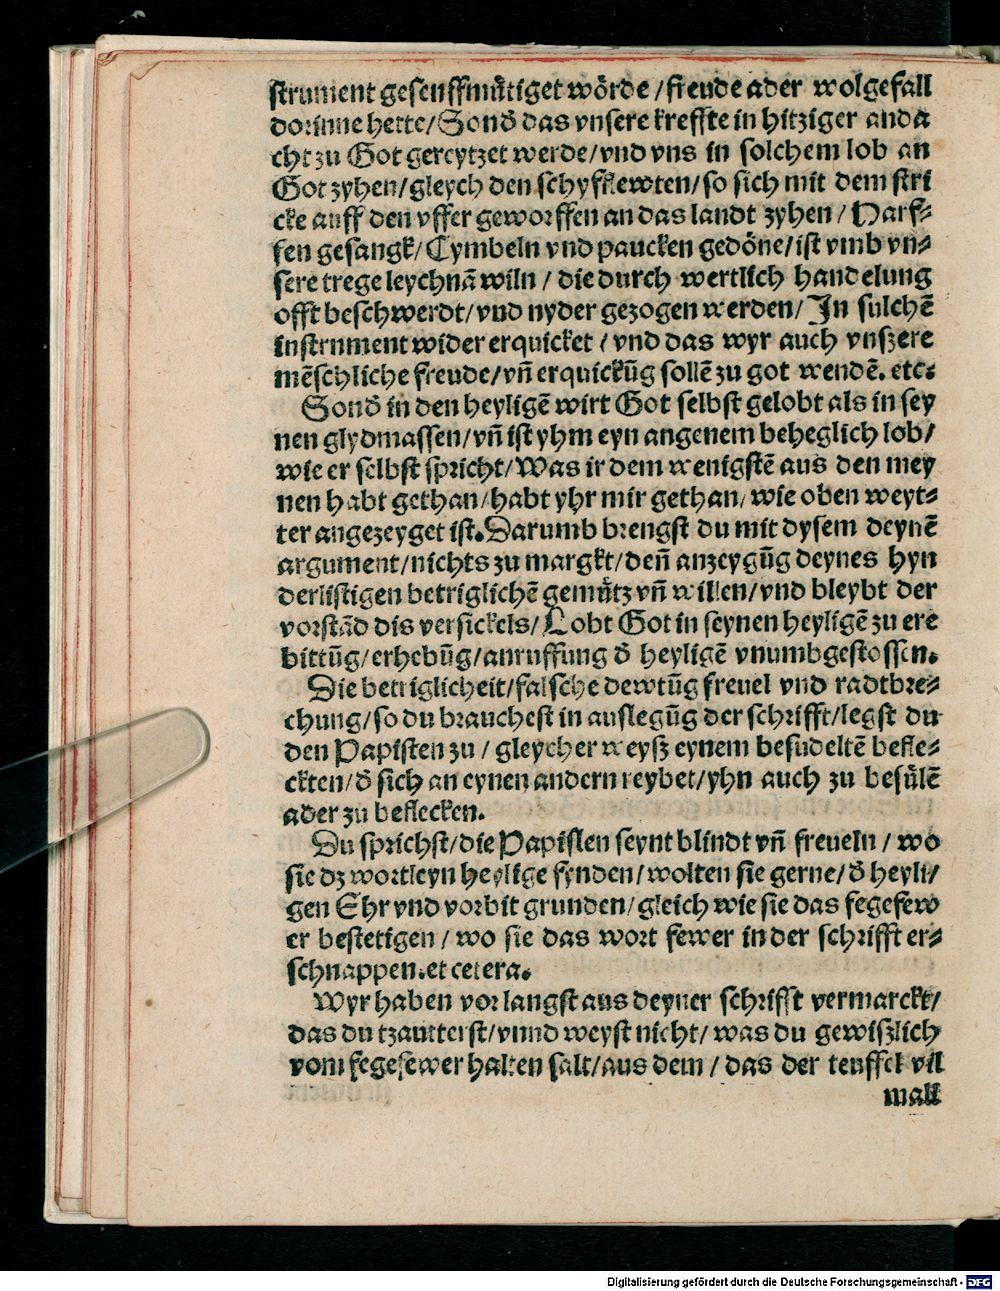 strument gesenffmuͤtiget woͤrde / freude ader wolgefall
dorinne hette / Sond' das vnsere kreffte in hitziger anda
cht zu Got gereytzet werde / vnd vns in solchem lob an
Got zyhen / gleych den schyfflewten / so sich mit dem stri
cke auff den vffer geworffen an das landt zyhen / Harf⸗
fen gesangk / Cymbeln vnd paucken gedoͤne / ist vmb vn⸗
sere trege leychnā wiln / die durch wertlich handelung
offt beschwerdt / vnd nyder gezogen werden / In sulchē
instrnment wider erquicket / vnd das wyr auch vnszere
mēschliche freude / vn̄ erquickūg sollē zu got wendē. etc.
Sond' in den heyligē wirt Got selbst gelobt als in sey
nen glydmassen / vn̄ ist yhm eyn angenem beheglich lob /
wie er selbst spricht / Was ir dem wenigstē aus den mey
nen habt gethan / habt yhr mir gethan / wie oben weyt⸗
ter angezeyget ist. Darumb brengst du mit dysem deynē
argument / nichts zu margkt / den̄ anzeygūg deynes hyn
derlistigen betriglichē gemuͤtz vn̄ willen / vnd bleybt der
vorstād dis versickels / Lobt Got in seynen heyligē zu ere
bittūg / erhebūg / anruffung d' heyligē vnumbgestossen.
Die betriglicheit / falsche dewtūg freuel vnd radtbre⸗
chung / so du brauchest in auslegūg der schrifft / legst du
den Papisten zu / gleycher weysz eynem besudeltē befle⸗
ckten / d' sich an eynen andern reybet / yhn auch zu besuͤlē
ader zu beflecken.
Du sprichst / die Papisten seynt blindt vn̄ freueln / wo
sie dz wortleyn heylige fynden / wolten sie gerne / d' heyli⸗
gen Ehr vnd vorbit grunden / gleich wie sie das fegefew
er bestetigen / wo sie das wort fewer in der schrifft er⸗
schnappen. et cetera.
Wyr haben vor langst aus deyner schrifft vermarckt /
das du tzautterst / vnnd weyst nicht / was du gewiszlich
vom fegefewer halten salt / aus dem / das der teuffel vil
mall
Digitalisierung gefördert durch die Deutsche Forschungsgemeinschaft - DFG